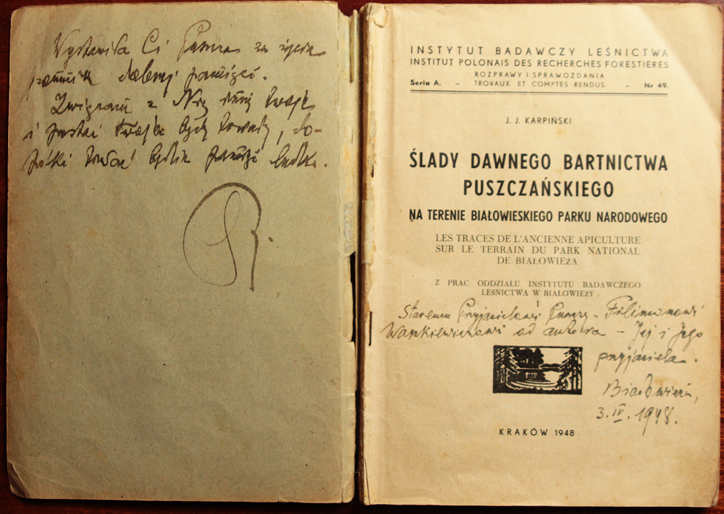 Wystawiła Ci Puszcza za życia
pomnik dalszej pamięci.
Związani z Nią
i postać będą, do-
póki trwać będzie pamięć ludzka.
INSTYTUT BADAWCZY LEŚNICTWA
INSTITUT POLONAIS DES RECHERCHES FORESTIERES
ROZPRAWY I SPRAWOZDANIA
Seria A. – TROVAUX ET COMPTES RENDUS – Nr 49.
J. J. KARPIŃSKI
ŚLADY DAWNEGO BARTNICTWA
PUSZCZAŃSKIEGO
NA TERENIE BIAŁOWIESKIEGO PARKU NARODOWEGO
LES TRACES DE L'ANCIENNE APICULTURE
SUR LE TERRAIN DU PARK NATIONAL
DE BIAŁOWIEŻA
Z PRAC ODDZIAŁU INSTYTUTU BADAWCZEGO
LEŚNICTWA W BIAŁOWIEŻY.
I
Staremu Przyjacielowi Puszczy – Filimonowi
Wapkiewiczowi od autora – Jej i Jego
przyjaciela.
Białowieża,
3. IV. 1948.
KRAKÓW 1948